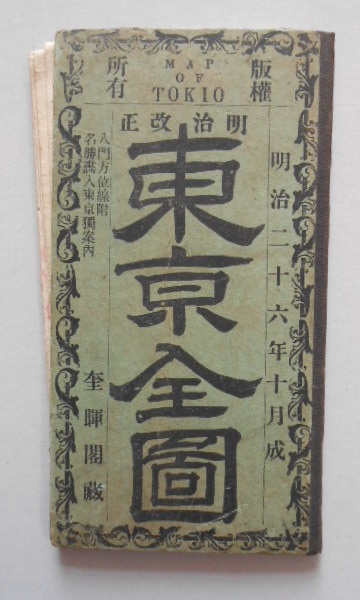 版權
所有
MAP
OF
TOKIO
明治改正
明治二十六年十月成
東京全圖
八門方位線附
名勝譜入東京獨案內
奎暉閣藏